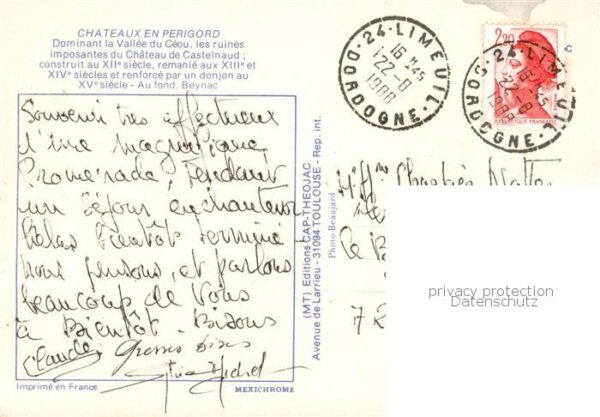 CHATEAUX EN PERIGORD
Dominant la Vallée du Céou, les ruines
imposantes du Château de Castelnaud ;
construit au XIIe siècle, remanié aux XIIIe et
XIVe siècles et renforcé par un donjon au
XVe siècle - Au fond. Beynac
Souvenir très affectueux
d'une magnifique
Promenade, Pendant
un séjour enchanteur
hélas bientôt terminé
nous pensons, et parlons
beaucoup de Vous
à Bientôt - Bisous
Claude grosses bises
Michel
Imprimé en France
MEXICHROME
(MT) Editions CAP-THEOJAC
Avenue de Larrieu - 31094 TOULOUSE - Rep. int.
Photo Beaujard
24-LIMEUIL
16 H45
22-8
1988
DORDOGNE
2,20
24-LIMEUIL
16 H45
22-8
1988
DORDOGNE
privacy protection
Datenschutz
72